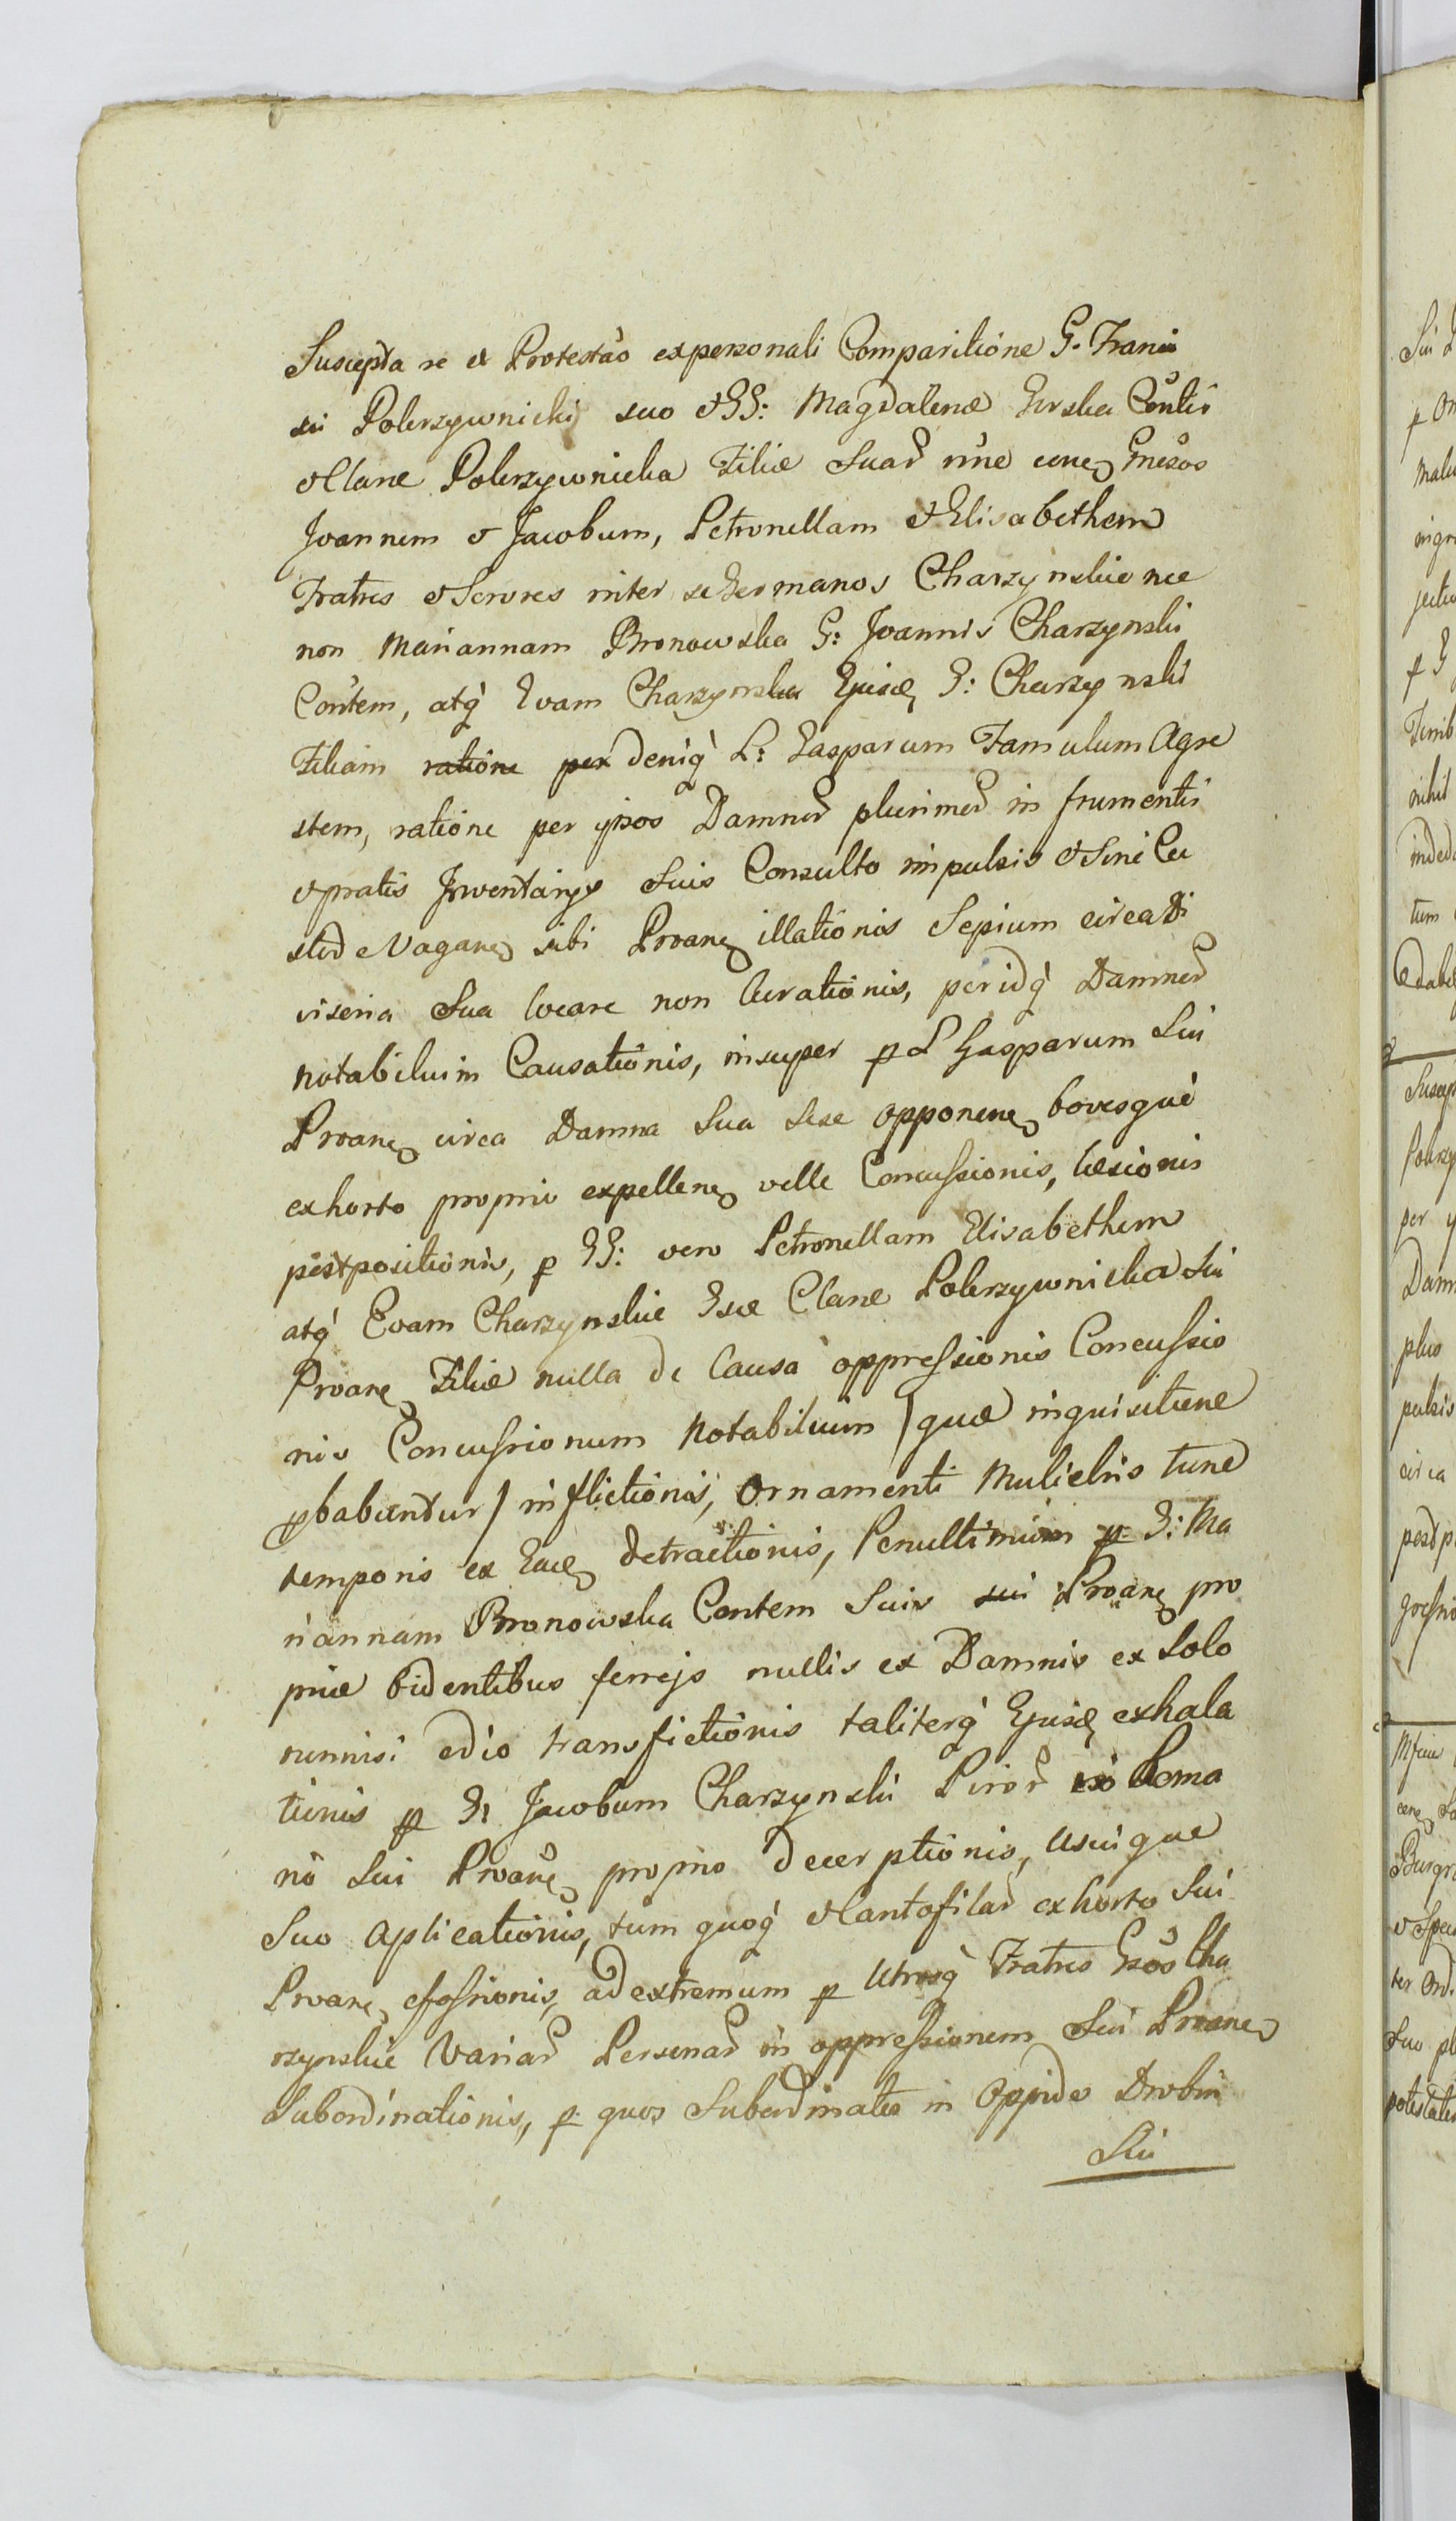 Suscepta re et Protestaõ ex personali Comparitione G. Franci
sci Poberzywnicki suo & GG: Magdalenæ Gurska Contis
& Claræ Poberzywnicka Filiæ Suar nñe cong Gñesos
Joannem & Jacobum, Petronellam & Elisabetham
Fratres & Sorores inter se Germanos Charzynskie nec
non Mariannam Bronowska G: Joannis Charzynski
Contem, atq̀ Evam Charzynska Ejusd G: Charzynski
Filiam ratione per deniq̀ L: Gasparum Famulum Agre
stem, ratione per ipsos Damnor plurimor in frumentis
& pratis Inventarijs Suis Consulto impulsis & Sine Cu
stode Vagan sibi Proan illationis Sepium circa Di
visoria Sua locare non Curationis, per idq̀ Damnor
notabiluim Causationis, insuper p L Gasparum Sui
Proan circa Damna Sua Sese opponen bovesquè
ex horto proprio expellen velle Concussionis, læsionis
postpositionis, p GG: vero Petronellam Elisabetham
atq̀ Evam Charzynskie Gsæ Claræ Poberzywnicka Sui
Proan Filiæ nulla de Causa oppressionis Concussio
nis Concussionum Notabiluim / quæ inquisitione
pbabuntur / inflictionis, Ornamenti Muliebris tunc
temporis ex Eade detractionis, Penultimum p G: Ma
riannam Bronowska Contem Suis sui Proan pro
priæ bidentibus ferrejs nullis ex Damnis ex Solo
nunnisi odio transfictionis taliterq̀ Ejusd exhala
tionis p G: Jacobum Charzynski Piror ex Poma
rio Sui Proan proprio decerptionis, Usuique
Suo Aplicationis, tum quoq̀ & Cantofilar ex horto Sui
Proan efossionis, ad extremum p Utrosq̀ Fratres Gsos Cha
rzynskie Variar Personar in oppressionem Sui Proan
Subordinationis, p quos Subordinatos in Oppido Drobin
Sui